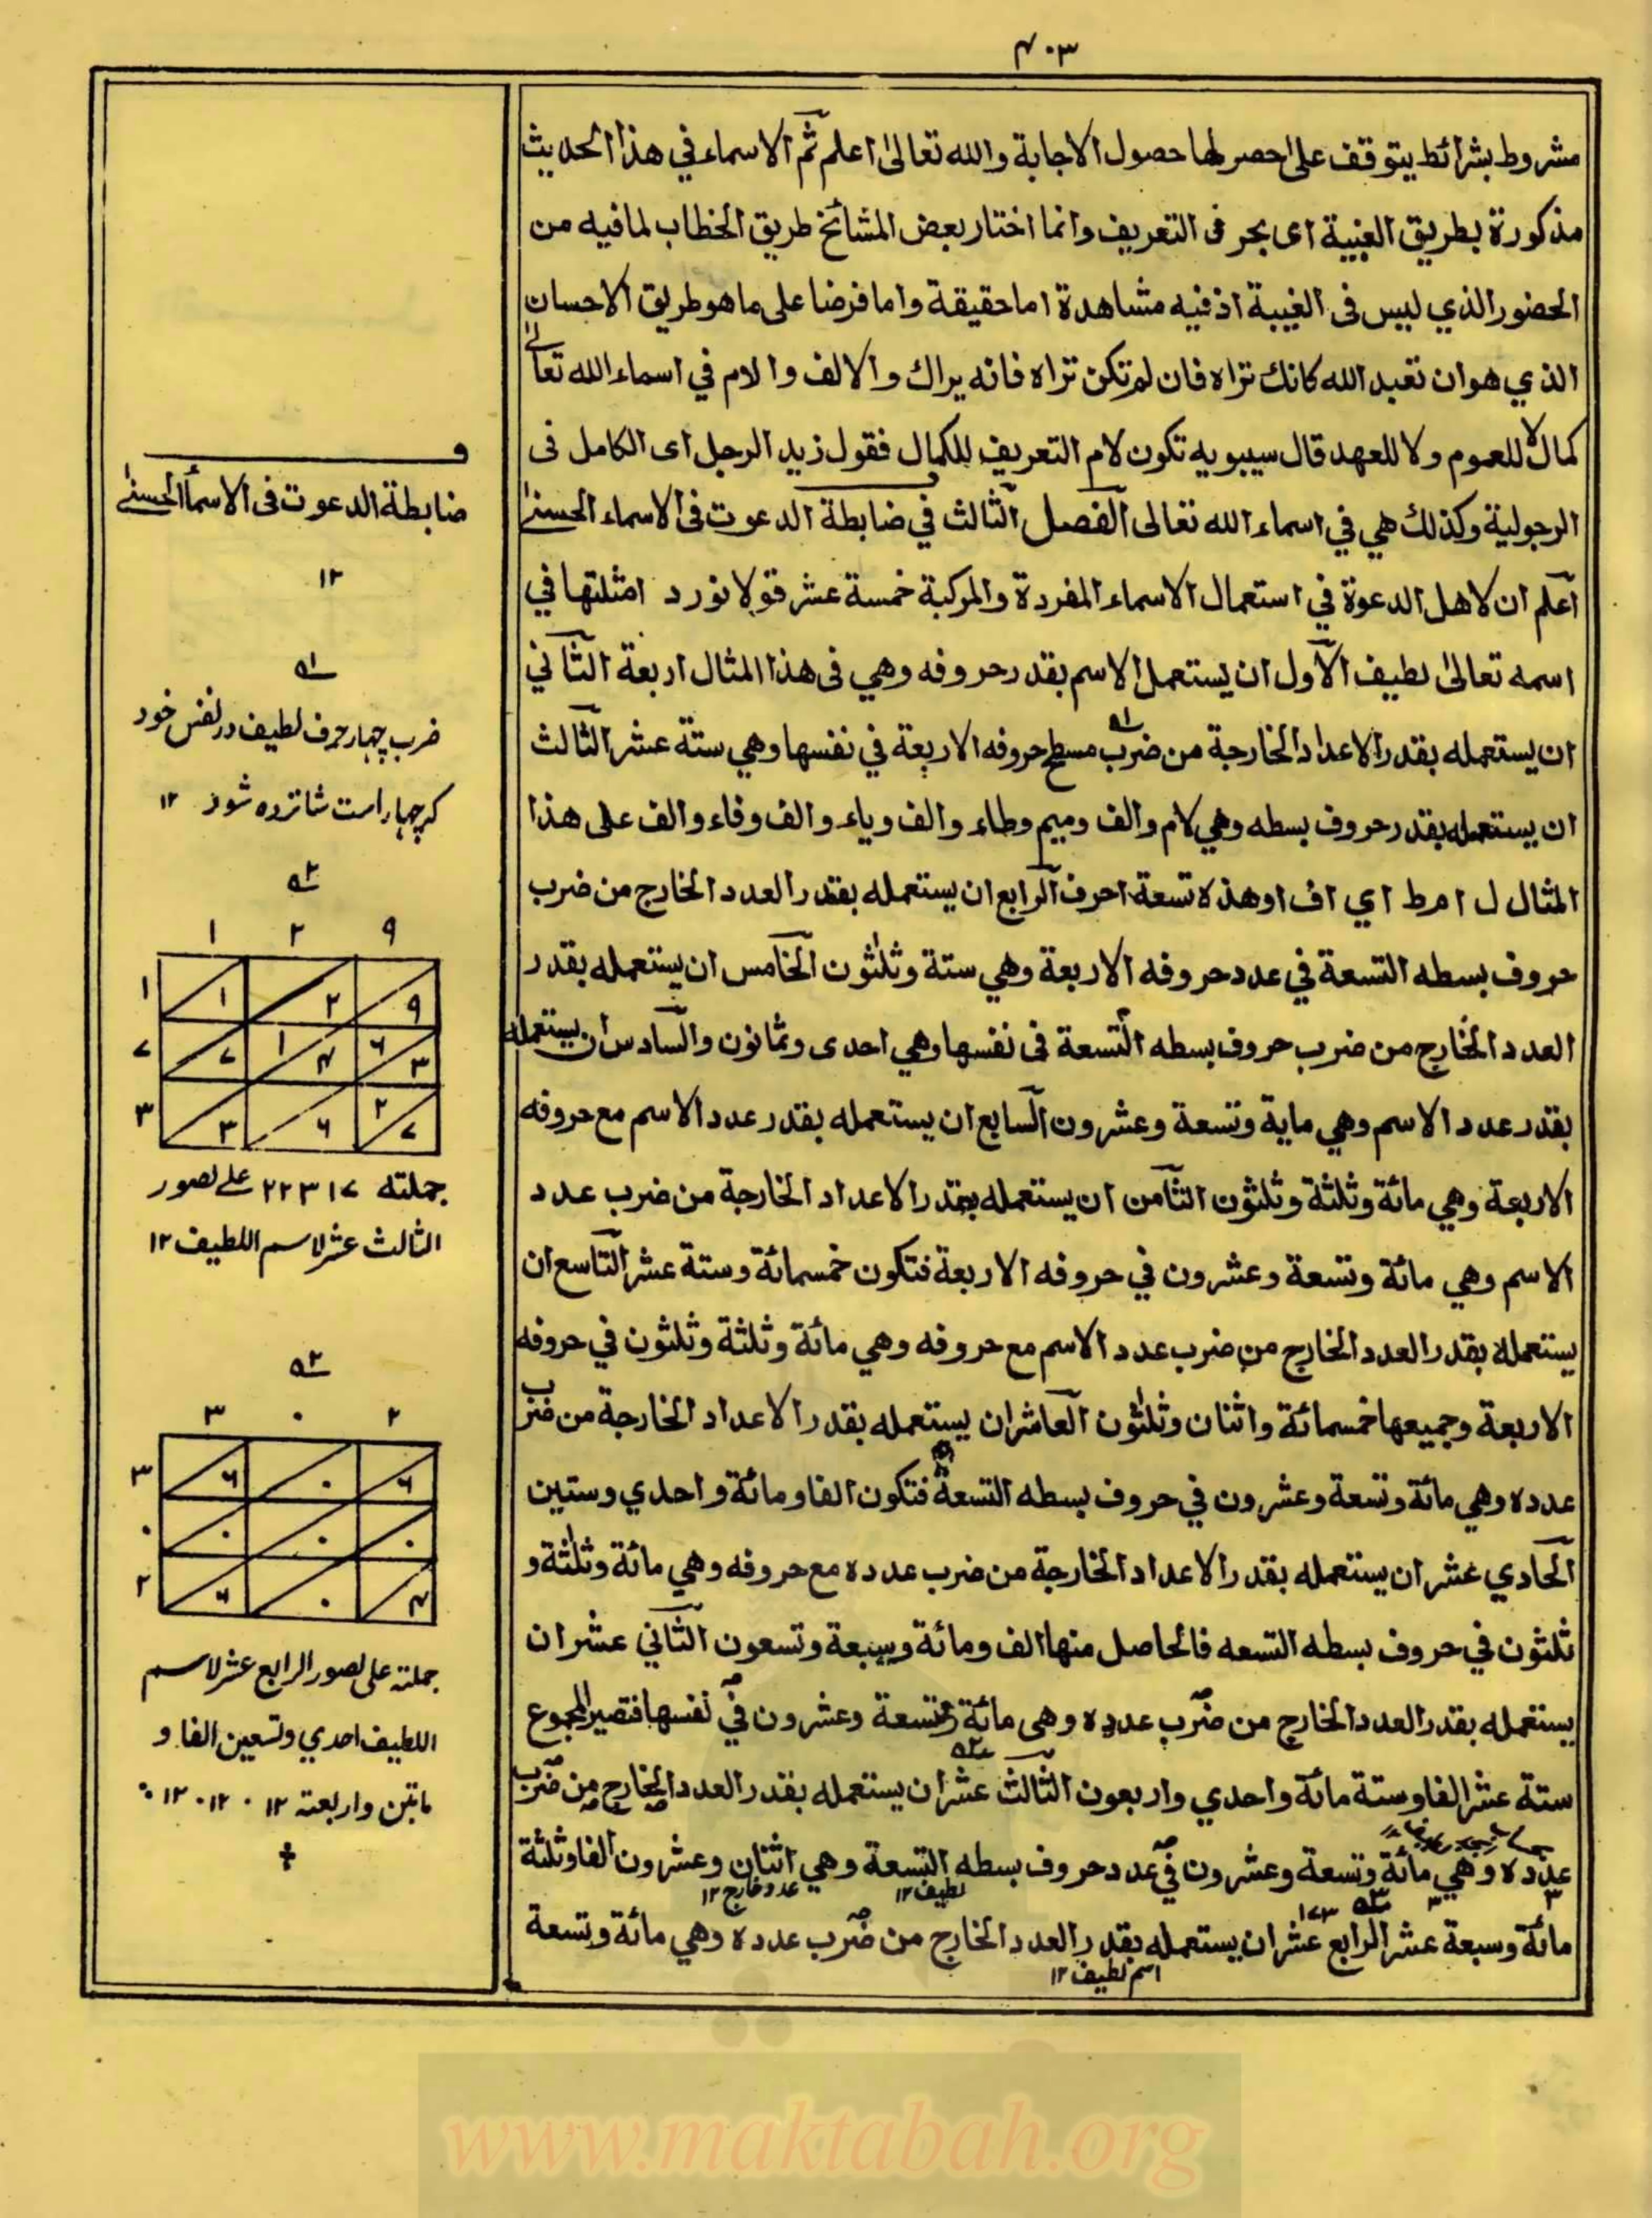 ۴۰۳
مشروط بشرائط يتوقف على حصرلها حصول الاجابة والله تعالى اعلم ثم الاسماء في هذا الحديث
مذكورة بطريق الغيبة اى بحرف التعريف وانما اختار بعض المشائخ طريق الخطاب لمافيه من
الحضور الذي ليس فى الغيبة اذ فيه مشاهدة اما حقيقة واما فرضا على ما هو طريق الاحسان
الذي هو ان تعبد الله كانك تراه فان لم تكن تراه فانه يراك و الالف و الام في اسماء الله تعالى
كمال لا للعموم ولا للعهد قال سيبويه تكون لام التعريف للكمال فقول زيد الرجل اى الكامل فى
الرجولية وكذلك هي في اسماء الله تعالى الفصل الثالث في ضابطة الدعوت فى الاسماء الحسنى
اعلم ان لاهل الدعوة في استعمال الاسماء المفردة والمركبة خمسة عشر قولا نورد امثلتها في
اسمه تعالى لطيف الاول ان يستعمل الاسم بقدر حروفه وهي فى هذا المثال اربعة الثاني
ان يستعمله بقدر الاعداد الخارجة من ضرب مسطح حروفه الاربعة في نفسها وهي ستة عشر الثالث
ان يستعمله بقدر حروف بسطه وهي لام والف وميم وطاء والف وياء والف وفاء والف على هذا
المثال ل ا م ط ا ي ا ف ا وهذه تسعة احرف الرابع ان يستعمله بقدر العدد الخارج من ضرب
حروف بسطه التسعة في عدد حروفه الاربعة وهي ستة وثلثون الخامس ان يستعمله بقدر
العدد الخارج من ضرب حروف بسطه التسعة فى نفسها وهي احدى وثمانون والسادس ان يستعمله
بقدر عدد الاسم وهي ماية وتسعة وعشرون السابع ان يستعمله بقدر عدد الاسم مع حروفه
الاربعة وهي مائة وثلثة وثلثون الثامن ان يستعمله بقدر الاعداد الخارجة من ضرب عدد
الاسم وهي مائة وتسعة وعشرون في حروفه الاربعة فتكون خمسمائة وستة عشر التاسع ان
يستعمله بقدر العدد الخارج من ضرب عدد الاسم مع حروفه وهي مائة وثلثة وثلثون في حروفه
الاربعة وجميعها خمسمائة واثنان وثلثون العاشر ان يستعمله بقدر الاعداد الخارجة من ضرب
عدده وهي مائة وتسعة وعشرون في حروف بسطه التسعة فتكون الفا ومائة واحدي وستين
الحادي عشر ان يستعمله بقدر الاعداد الخارجة من ضرب عدده مع حروفه وهي مائة وثلثة و
ثلثون في حروف بسطه التسعه فالحاصل منها الف ومائة وسبعة وتسعون الثاني عشر ان
يستعمله بقدر العدد الخارج من ضرب عدده وهى مائة وتسعة وعشرون في نفسها فتصير المجموع
ستة عشر الفا وستة مائة واحدي واربعون الثالث عشر ان يستعمله بقدر العدد الخارج من ضرب
عدده وهي مائة وتسعة وعشرون في عدد حروف بسطه التسعة وهي اثنان وعشرون الفا وثلثة
لطيف ١٢
عدد خارج ١٢
١٧٣
مائة وسبعة عشر الرابع عشر ان يستعمله بقدر العدد الخارج من ضرب عدده وهي مائة وتسعة
اسم لطيف ١٢
ضابطة الدعوت فى الاسماء الحسنى
١٢
ضرب چهار حرف لطيف در نفس خود
كه چهار است شانزده شود ١٢
١ ٢ ٩
١ ١ ٢ ٩
٧ ٧ ١ ۴ ٦ ٣
٣ ٣ ٦ ٢ ٧
جملته ٢٢٣١٧ على تصور
الثالث عشر لاسم اللطيف ١٢
٣ ٠ ٢
٣ ٦ ٠ ٦
٠ ٠ ٠ ٠
٢ ٦ ٠ ۴
جملته على تصور الرابع عشر لاسم
اللطيف احدي وتسعين الفا و
ماتين واربعته ١٢ ٠ ١٢ ٠ ١٢
www.maktabah.org